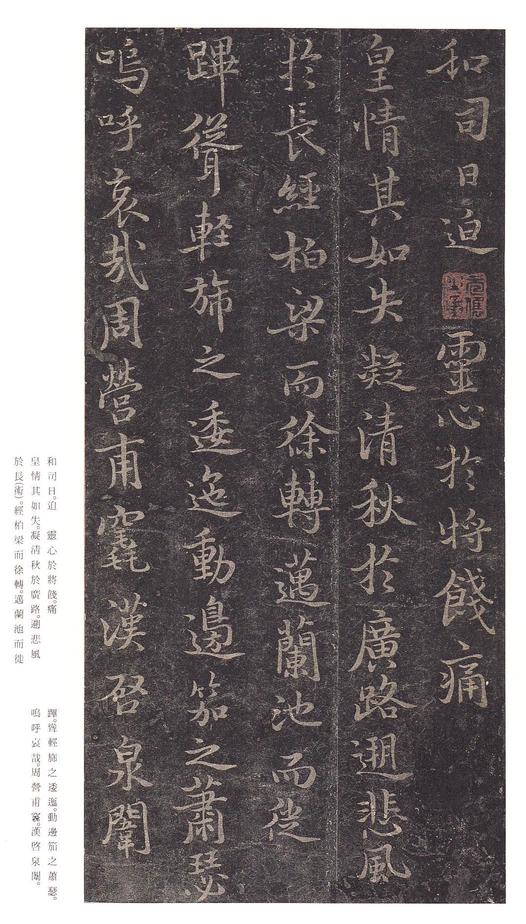 和司日迫靈心於將餞痛
皇情其如失凝清秋於廣路遡悲風
於長經柏梁而徐轉邁蘭池而徙
蹕聳輕旆之逶迤動邊笳之蕭瑟
嗚呼哀哉周營甫窆漢啓泉闈
和司日。迫　靈心於將餞痛
皇情其如失。凝清秋於廣路。遡悲風
於長(術)。經柏梁而徐轉。邁蘭池而徙
蹕。聳輕旆之逶迤。動邊笳之蕭瑟。
嗚呼哀哉。周營甫窆。漢啓泉闈。